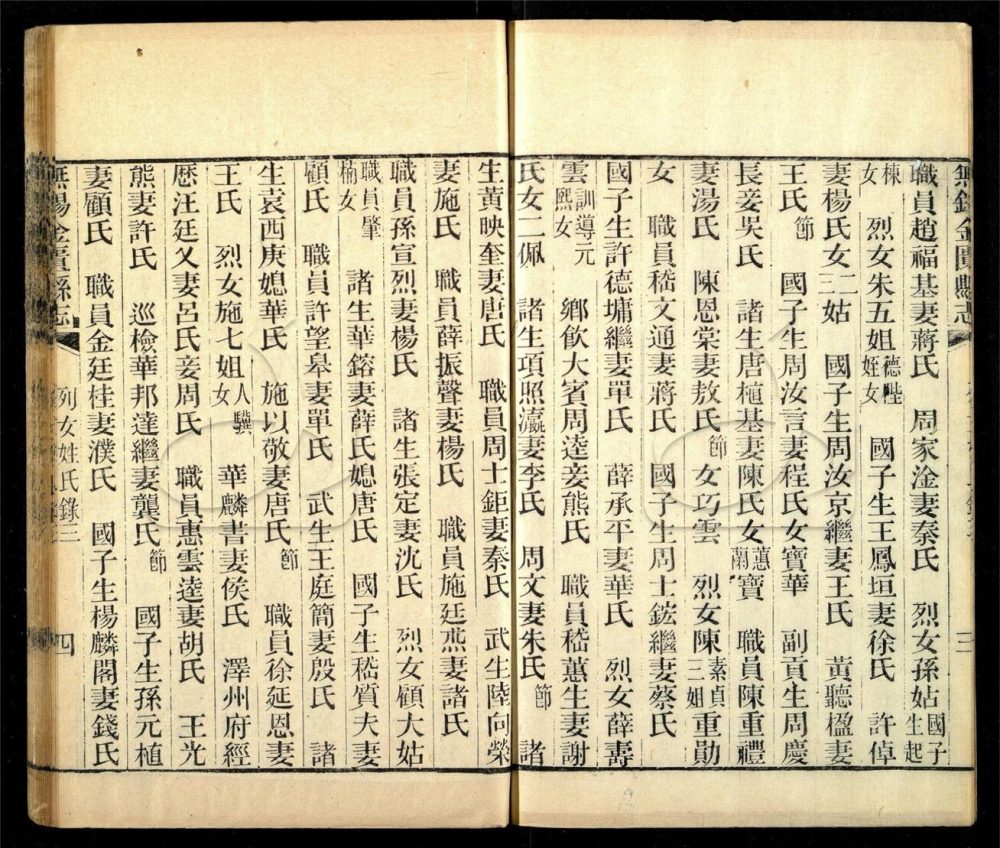 無錫金匱縣志
三
職員趙福基妻蔣氏 周家淦妻秦氏 烈女孫姑國子生起
棟女 烈女朱五姐德陛姪女 國子生王鳳垣妻徐氏 許倬
妻楊氏女二姑 國子生周汝京繼妻王氏 黃聽楹妻
王氏節 國子生周汝言妻程氏女寶華 副貢生周慶
長妾吳氏 諸生唐植基妻陳氏女蕙蘭寶 職員陳重禮
妻湯氏 陳恩棠妻敖氏節女巧雲 烈女陳素貞三姐重勛
女 職員嵇文通妻蔣氏 國子生周士鋐繼妻蔡氏
國子生許德墉繼妻單氏 薛承平妻華氏 烈女薛壽
雲訓導元熙女 鄉飲大賓周逵妾熊氏 職員嵇蕙生妻謝
氏女二佩 諸生項照瀛妻李氏 周文妻朱氏節 諸
生黃映奎妻唐氏 職員周士鉅妻秦氏 武生陸向榮
妻施氏 職員薛振聲妻楊氏 職員施廷燕妻諸氏
職員孫宣烈妻楊氏 諸生張定妻沈氏 烈女顧大姑
職員肇瑜女 諸生華鎔妻薛氏媳唐氏 國子生嵇質夫妻
顧氏 職員許望皋妻單氏 武生王庭簡妻殷氏 諸
生袁西庚媳華氏 施以敬妻唐氏節 職員徐延恩妻
王氏 烈女施七姐人驥女 華麟書妻侯氏 澤州府經
歷汪廷乂妻呂氏妾周氏 職員惠雲逵妻胡氏 王光
熊妻許氏 巡檢華邦達繼妻龔氏節 國子生孫元植
妻顧氏 職員金廷桂妻濮氏 國子生楊麟閣妻錢氏
無錫金匱縣志 列女姓氏錄三 四